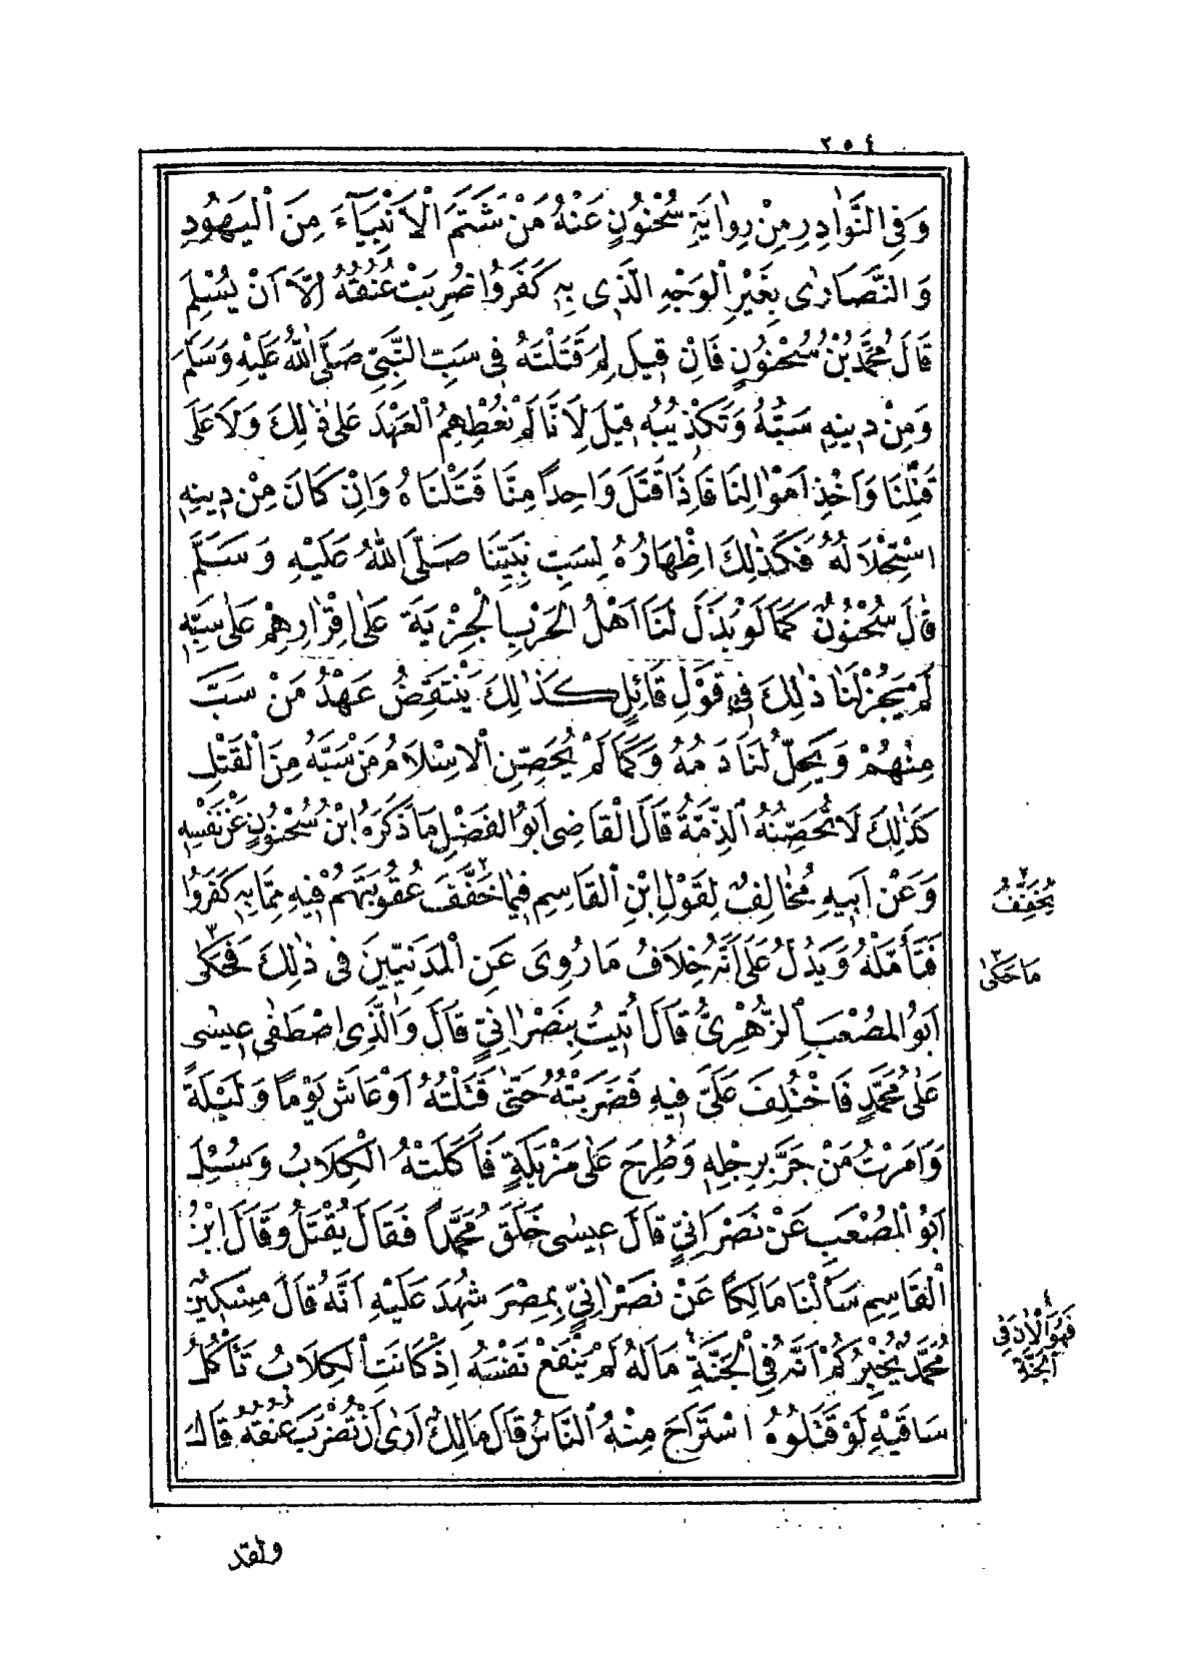 ٢٥٤
وَفِي النَّوَادِرِ مِنْ رِوَايَةِ سُحْنُونٍ عَنْهُ مَنْ شَتَمَ الْاَنْبِيَآءَ مِنَ الْيَهُودِ
وَالنَّصَارٰى بِغَيْرِ الْوَجْهِ الَّذِى بِهِ كَفَرُوا ضُرِبَتْ عُنُقُهُ اِلَّا اَنْ يُسْلِمَ
قَالَ مُحَمَّدُ بْنُ سُحْنُونٍ فَاِنْ قِيلَ لِمَ قَتَلْتَهُ فِى سَبِّ النَّبِىِّ صَلَّى اللّٰهُ عَلَيْهِ وَسَلَّمَ
وَمِنْ دِينِهِ سَبُّهُ وَتَكْذِيبُهُ قِيلَ لِاَنَّا لَمْ نُعْطِهِمُ الْعَهْدَ عَلٰى ذٰلِكَ وَلَا عَلَى
قَتْلِنَا وَاَخْذِ اَمْوَالِنَا فَاِذَا قَتَلَ وَاحِدًا مِنَّا قَتَلْنَاهُ وَاِنْ كَانَ مِنْ دِينِهِ
اسْتِحْلَالُهُ فَكَذٰلِكَ اِظْهَارُهُ لِسَبِّ نَبِيِّنَا صَلَّى اللّٰهُ عَلَيْهِ وَسَلَّمَ
قَالَ سُحْنُونٌ كَمَا لَوْ بَذَلَ لَنَا اَهْلُ الْحَرْبِ الْجِزْيَةَ عَلٰى اِقْرَارِهِمْ عَلٰى سَبِّهِ
لَمْ يَجُزْ لَنَا ذٰلِكَ فِى قَوْلِ قَائِلٍ كَذٰلِكَ يَنْتَقِضُ عَهْدُ مَنْ سَبَّ
مِنْهُمْ وَيَحِلُّ لَنَا دَمُهُ وَكَمَا لَمْ يُحَصِّنِ الْاِسْلَامُ مَنْ سَبَّهُ مِنَ الْقَتْلِ
كَذٰلِكَ لَا تُحَصِّنُهُ الذِّمَّةُ قَالَ الْقَاضِى اَبُو الْفَضْلِ مَا ذَكَرَهُ ابْنُ سُحْنُونٍ عَنْ نَفْسِهِ
وَعَنْ اَبِيهِ مُخَالِفٌ لِقَوْلِ ابْنِ الْقَاسِمِ فِيمَا خَفَّفَ عُقُوبَتَهُمْ فِيهِ مِمَّا بِهِ كَفَرُوا
يُخَفِّفُ
فَتَأَمَّلْهُ وَيَدُلُّ عَلَى اَنَّهُ خِلَافُ مَا رُوِىَ عَنِ الْمَدَنِيِّينَ فِى ذٰلِكَ فَحَكٰى
مَا حَكٰى
اَبُو الْمُصْعَبِ الزُّهْرِىُّ قَالَ اُتِيتُ بِنَصْرَانِىٍّ قَالَ وَالَّذِى اصْطَفٰى عِيسٰى
عَلٰى مُحَمَّدٍ فَاخْتُلِفَ عَلَىَّ فِيهِ فَضَرَبْتُهُ حَتّٰى قَتَلْتُهُ اَوْ عَاشَ يَوْمًا وَلَيْلَةً
وَاَمَرْتُ مَنْ جَرَّ بِرِجْلِهِ وَطُرِحَ عَلٰى مَزْبَلَةٍ فَاَكَلَتْهُ الْكِلَابُ وَسُئِلَ
اَبُو الْمُصْعَبِ عَنْ نَصْرَانِىٍّ قَالَ عِيسٰى خَلَقَ مُحَمَّدًا فَقَالَ يُقْتَلُ وَقَالَ ابْنُ
الْقَاسِمِ سَأَلْنَا مَالِكًا عَنْ نَصْرَانِىٍّ بِمِصْرَ شُهِدَ عَلَيْهِ اَنَّهُ قَالَ مِسْكِينٌ
مُحَمَّدٌ يُخْبِرُكُمْ اَنَّهُ فِى الْجَنَّةِ مَا لَهُ لَمْ يَنْفَعْ نَفْسَهُ اِذْ كَانَتِ الْكِلَابُ تَأْكُلُ
فَهُوَ الْاٰنَ فِى
الْجَنَّةِ
سَاقَيْهِ لَوْ قَتَلُوهُ اسْتَرَاحَ مِنْهُ النَّاسُ قَالَ مَالِكٌ اَرٰى اَنْ تُضْرَبَ عُنُقُهُ قَالَ
ولقد